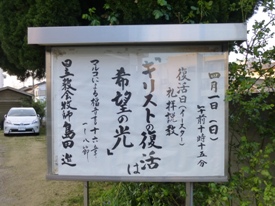 四月一日（日）
午前十時十五分
復活日（イースター）
礼拝説教
「キリストの復活は
希望の光」
マルコによる福音書十六章
一～八節
牧師 島田 進